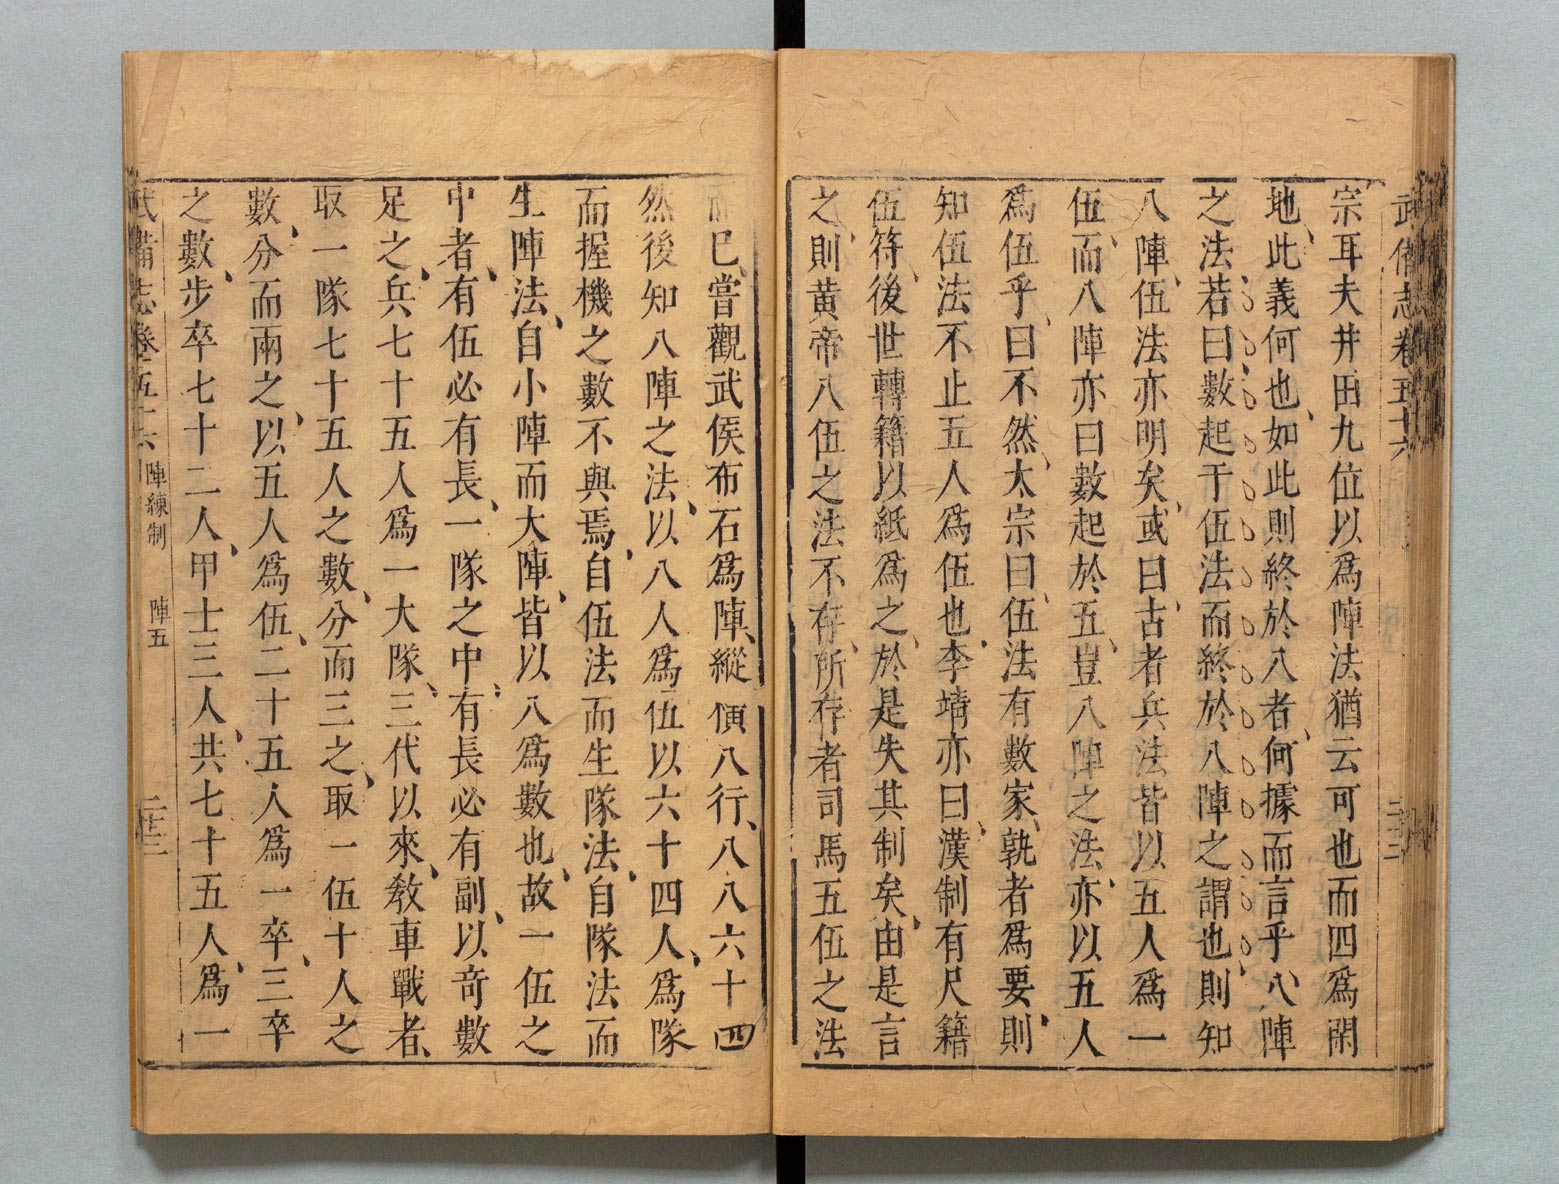 武備志卷五十六 二十二
宗耳夫井田九位以爲陣法猶云可也而四爲閑
地、此義何也、如此則終於八者、何據而言乎、八陣
之法、若曰、數起于伍法而終於八陣之謂也、則知
八陣、伍法亦明矣、或曰、古者兵法皆以五人爲一
伍、而八陣亦曰數起於五、豈八陣之法、亦以五人
爲伍乎、曰不然、太宗曰、伍法有數家、孰者爲要、則
知伍法不止五人爲伍也、李靖亦曰、漢制有尺籍
伍符、後世轉籍以紙爲之、於是失其制矣、由是言
之、則黃帝八伍之法不存、所存者司馬五伍之法
而巳、嘗觀武侯布石爲陣、縱橫八行、八八六十四
然後知八陣之法、以八人爲伍以六十四人、爲隊
而握機之數不與焉、自伍法而生隊法、自隊法而
生陣法、自小陣而大陣、皆以八爲數也、故一伍之
中者、有伍必有長、一隊之中、有長必有副、以竒數
足之、兵七十五人爲一大隊、三代以來、敎車戰者、
取一隊七十五人之數、分而三之、取一伍十人之
數、分而兩之、以五人爲伍、二十五人爲一卒、三卒
之數、步卒七十二人、甲士三人、共七十五人、爲一
武備志卷五十六 陣練制 陣五 二十二